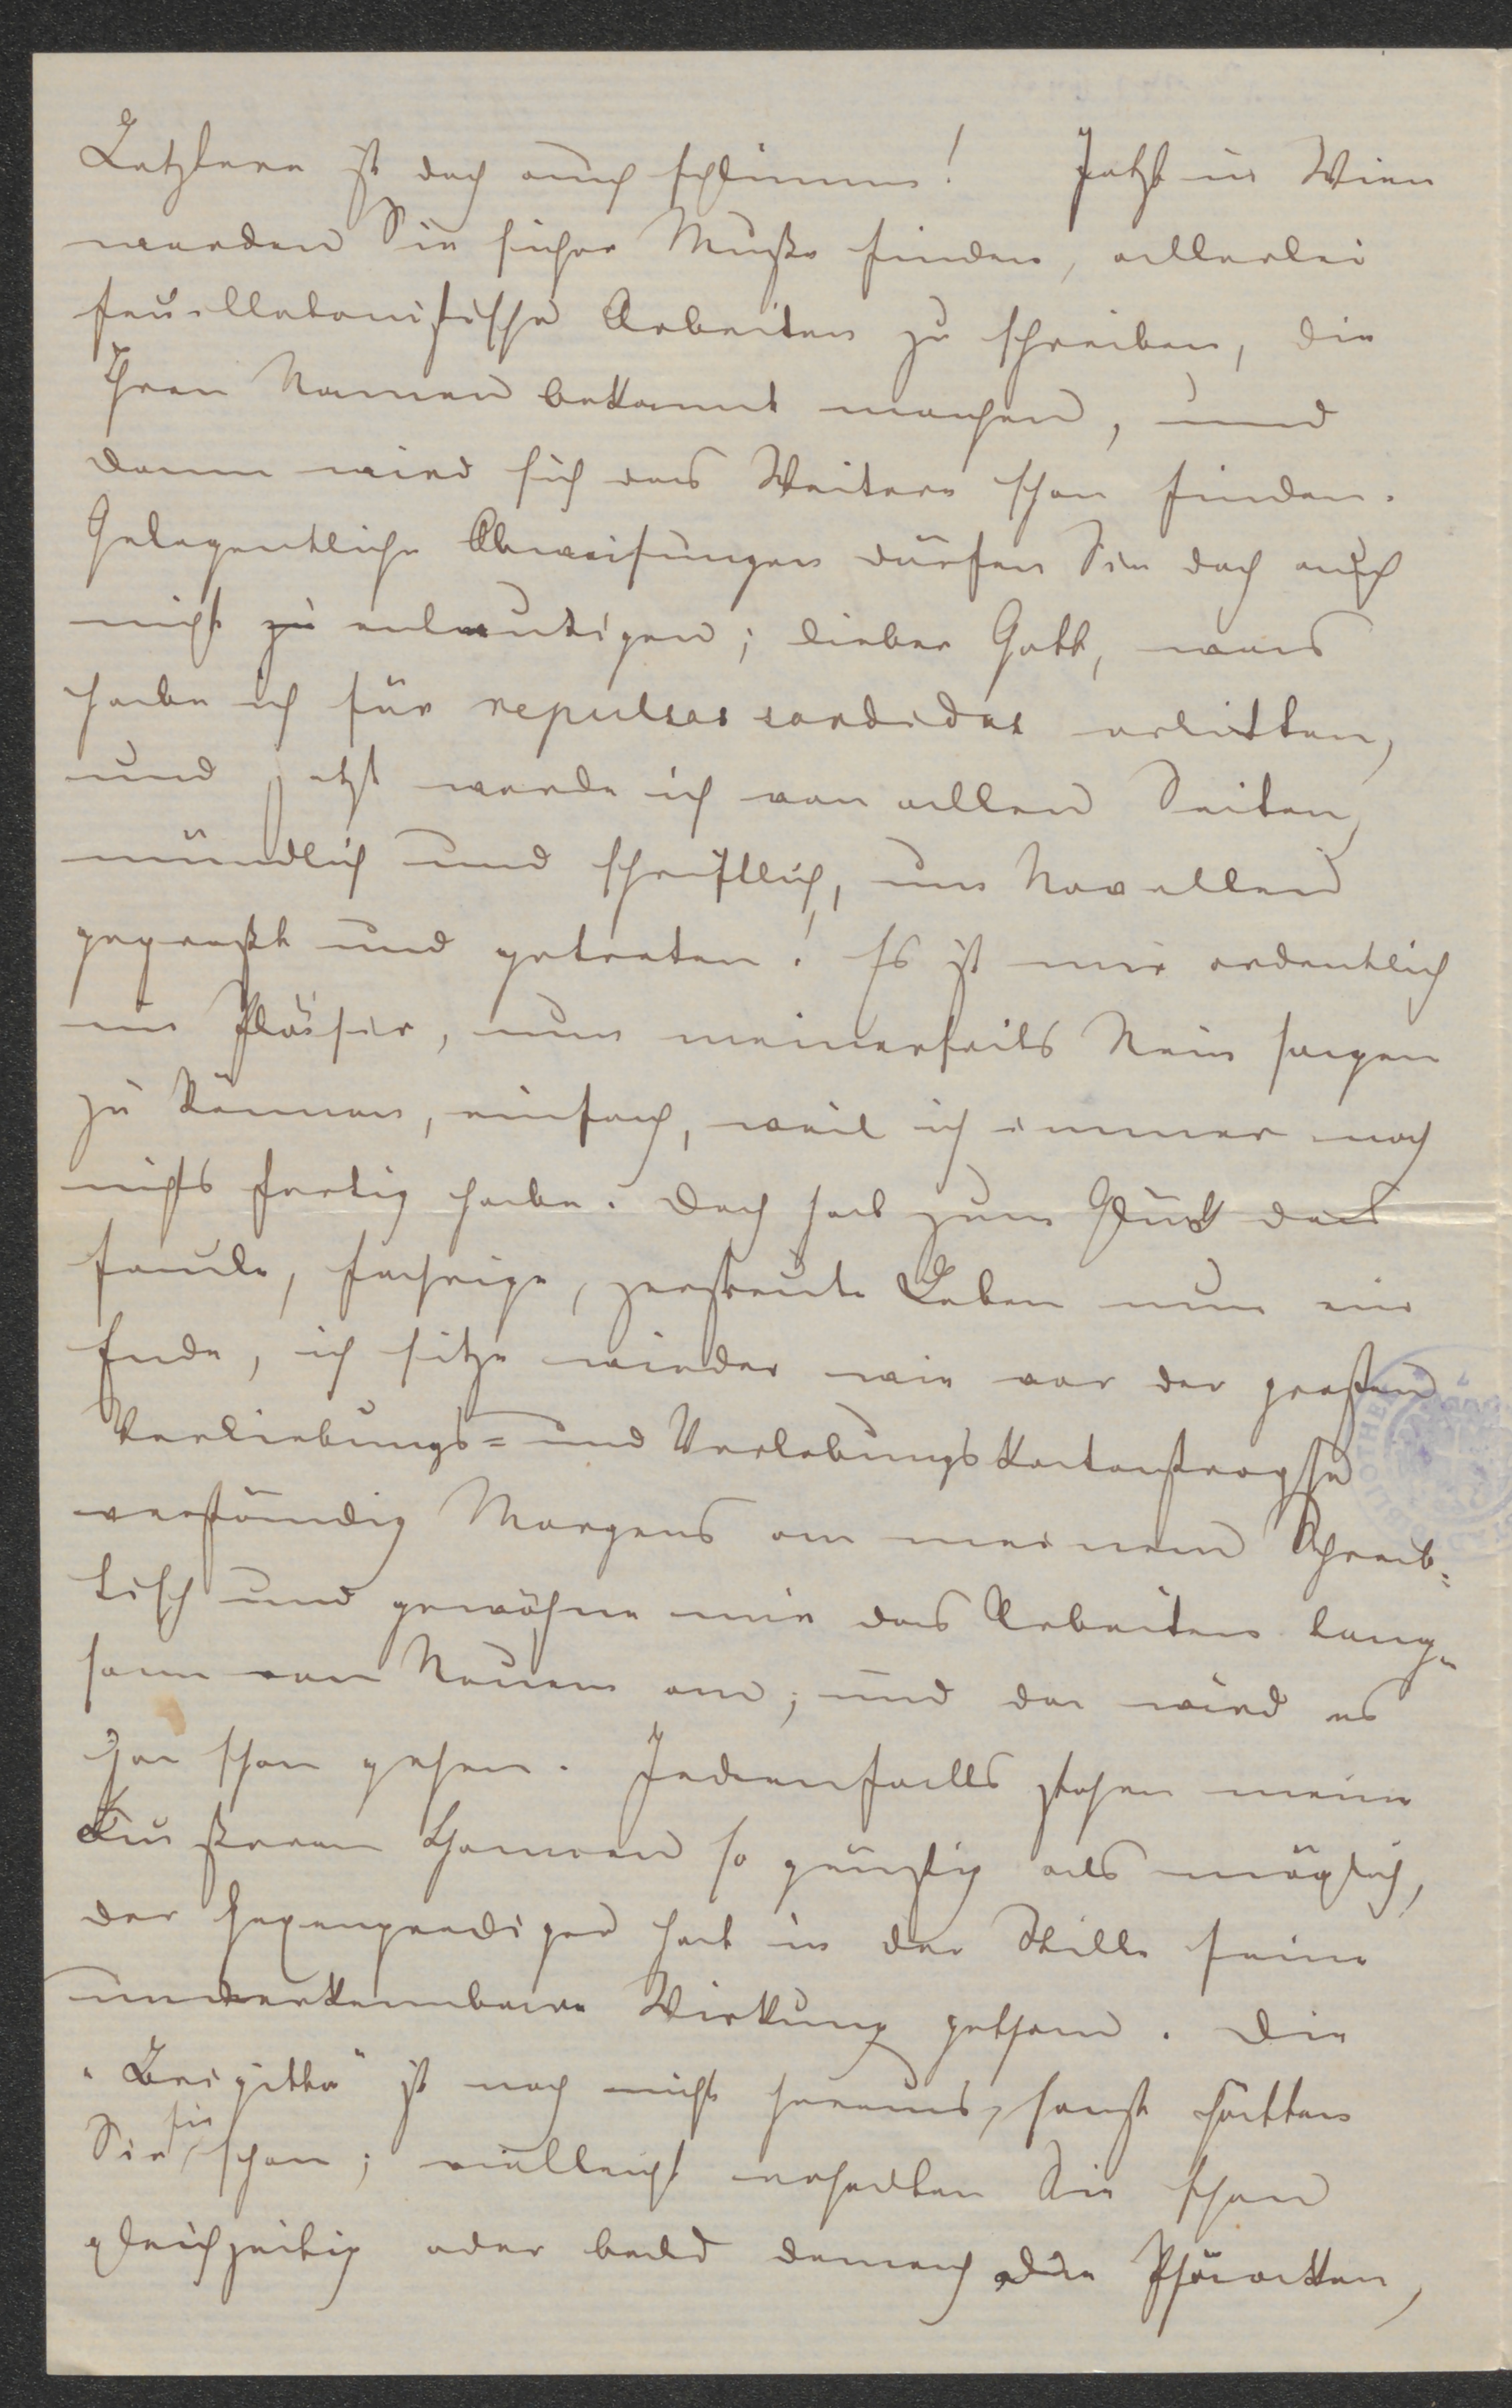 Letztere ist doch auch schlimm! Jetzt in Wien
werden Sie sicher Muße finden, allerlei
feuilletonistische Arbeiten zu schreiben, die
Ihren Namen bekannt machen, und
dann wird sich das Weitere schon finden.
Gelegentliche Abweisungen dürfen Sie doch auch
nicht zu entmutigen; lieber Gott, was
habe ich für repulsas sordidas erlitten,
und jetzt werde ich von allen Seiten,
mündlich und schriftlich, um Novellen
gepreßt und getreten! Es ist mir ordentlich
ein Pläsier, nun meinerseits Nein sagen
zu können, einfach, weil ich immer noch
nichts fertig habe. Doch hat zum Glück das
faule, fahrige, zerstreute Leben nun ein
Ende, ich sitze wieder wie vor der großen
Verliebungs- und Verlobungskatastrophe
verständig Morgens an meinem Schreib-
tisch und gewöhne mir das Arbeiten lang-
sam von Neuem an; und da wird es
ja schon gehen. Jedenfalls stehen meine
äußeren Chancen so günstig als möglich,
der Hexenprediger hat in der Stille seine
unverkennbare Wirkung gethan. Die
"Brigitta" ist noch nicht heraus, sonst hätten
Sie sie schon; vielleicht erhalten Sie schon
gleichzeitig oder bald danach die Phäaken,